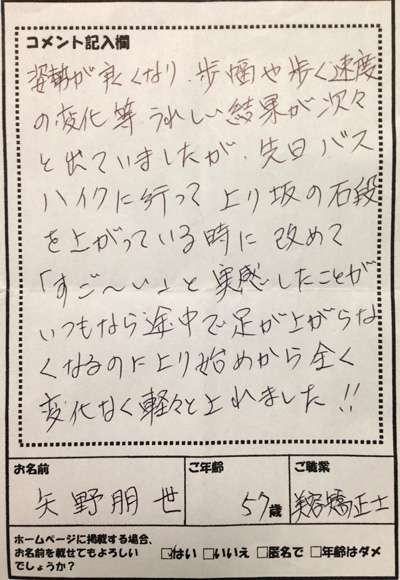 コメント記入欄
姿勢が良くなり、歩幅や歩く速度
の変化等うれしい結果が次々
と出ていましたが、先日バス
ハイクに行って上り坂の石段
を上がっている時に改めて
「すご〜い」と実感したことが
いつもなら途中で足が上がらな
くなるのに上り始めから全く
変化なく軽々と上れました!!
お名前 ご年齢 ご職業
矢野朋世 57歳 美容矯正士
ホームページに掲載する場合、
お名前を載せてもよろしい
でしょうか?
☑はい □いいえ □匿名で □年齢はダメ